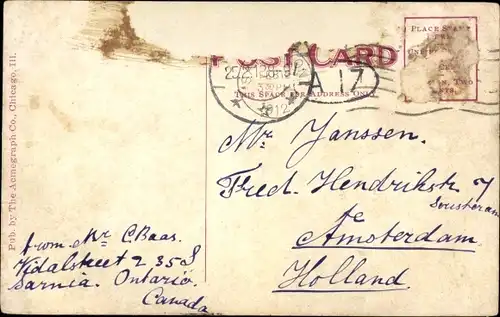 POST CARD
PLACE STAMP
HERE
THIS SPACE FOR ADDRESS ONLY
A 17
1912
Pub. by The Acmegraph Co., Chicago, Ill.
Mr Janssen.
Fred. Hendrikstr 7
Sousterain
te
Amsterdam
Holland.
from Mr C Baas.
Vidalstreet 235 S
Sarnia. Ontario.
Canada